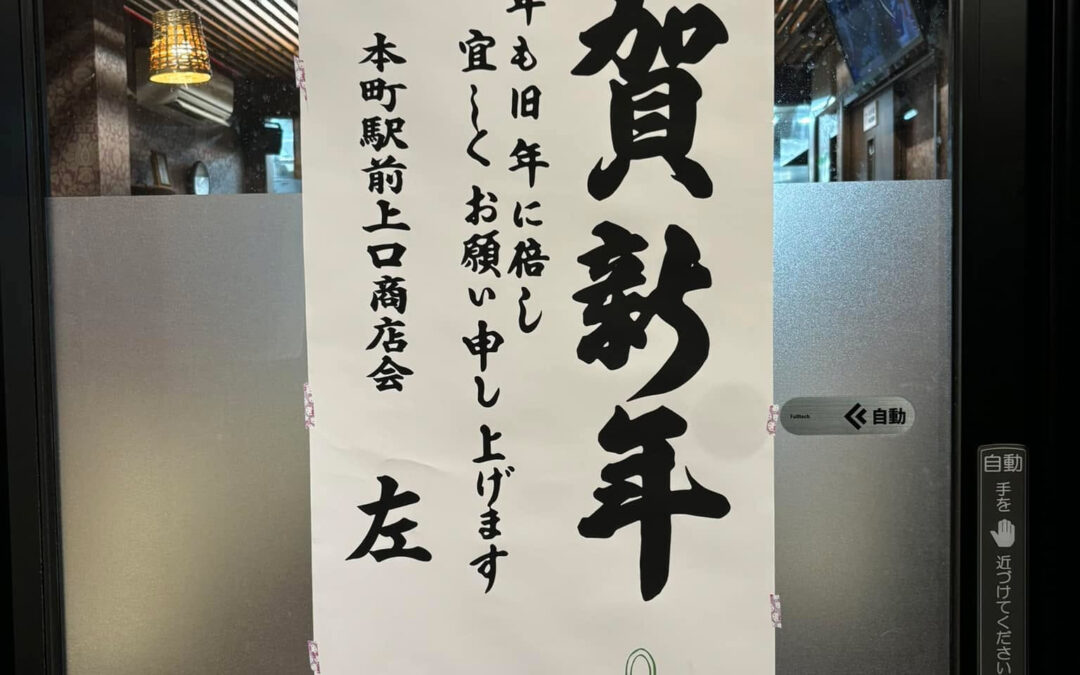 賀新年
年も旧年に倍し
宜しくお願い申し上げます
本町駅前上口商店会 左
Fulltech
自動
自動
手を
近づけてください